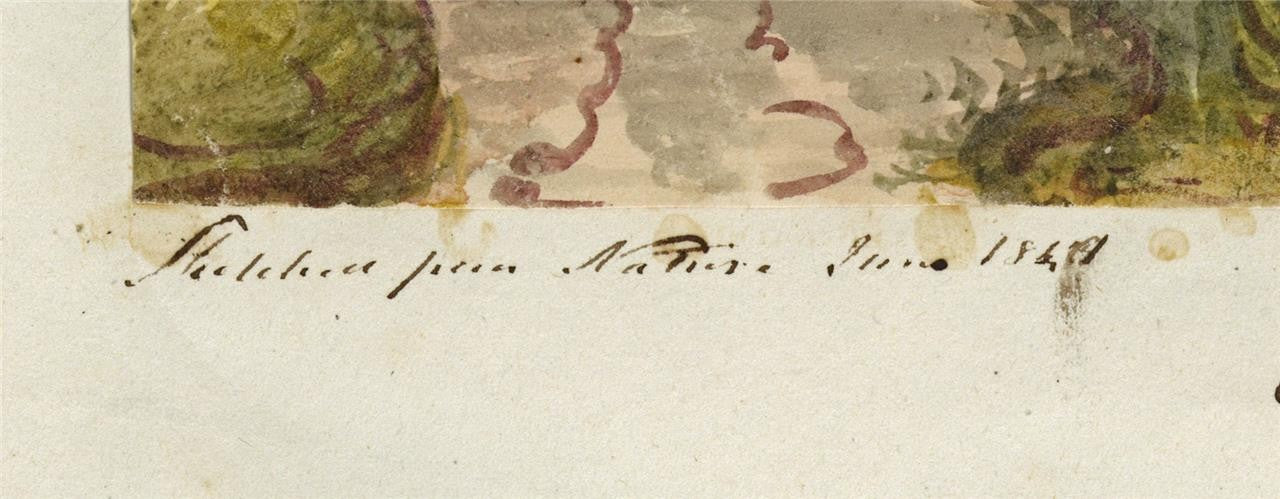 Sketched from Nature June